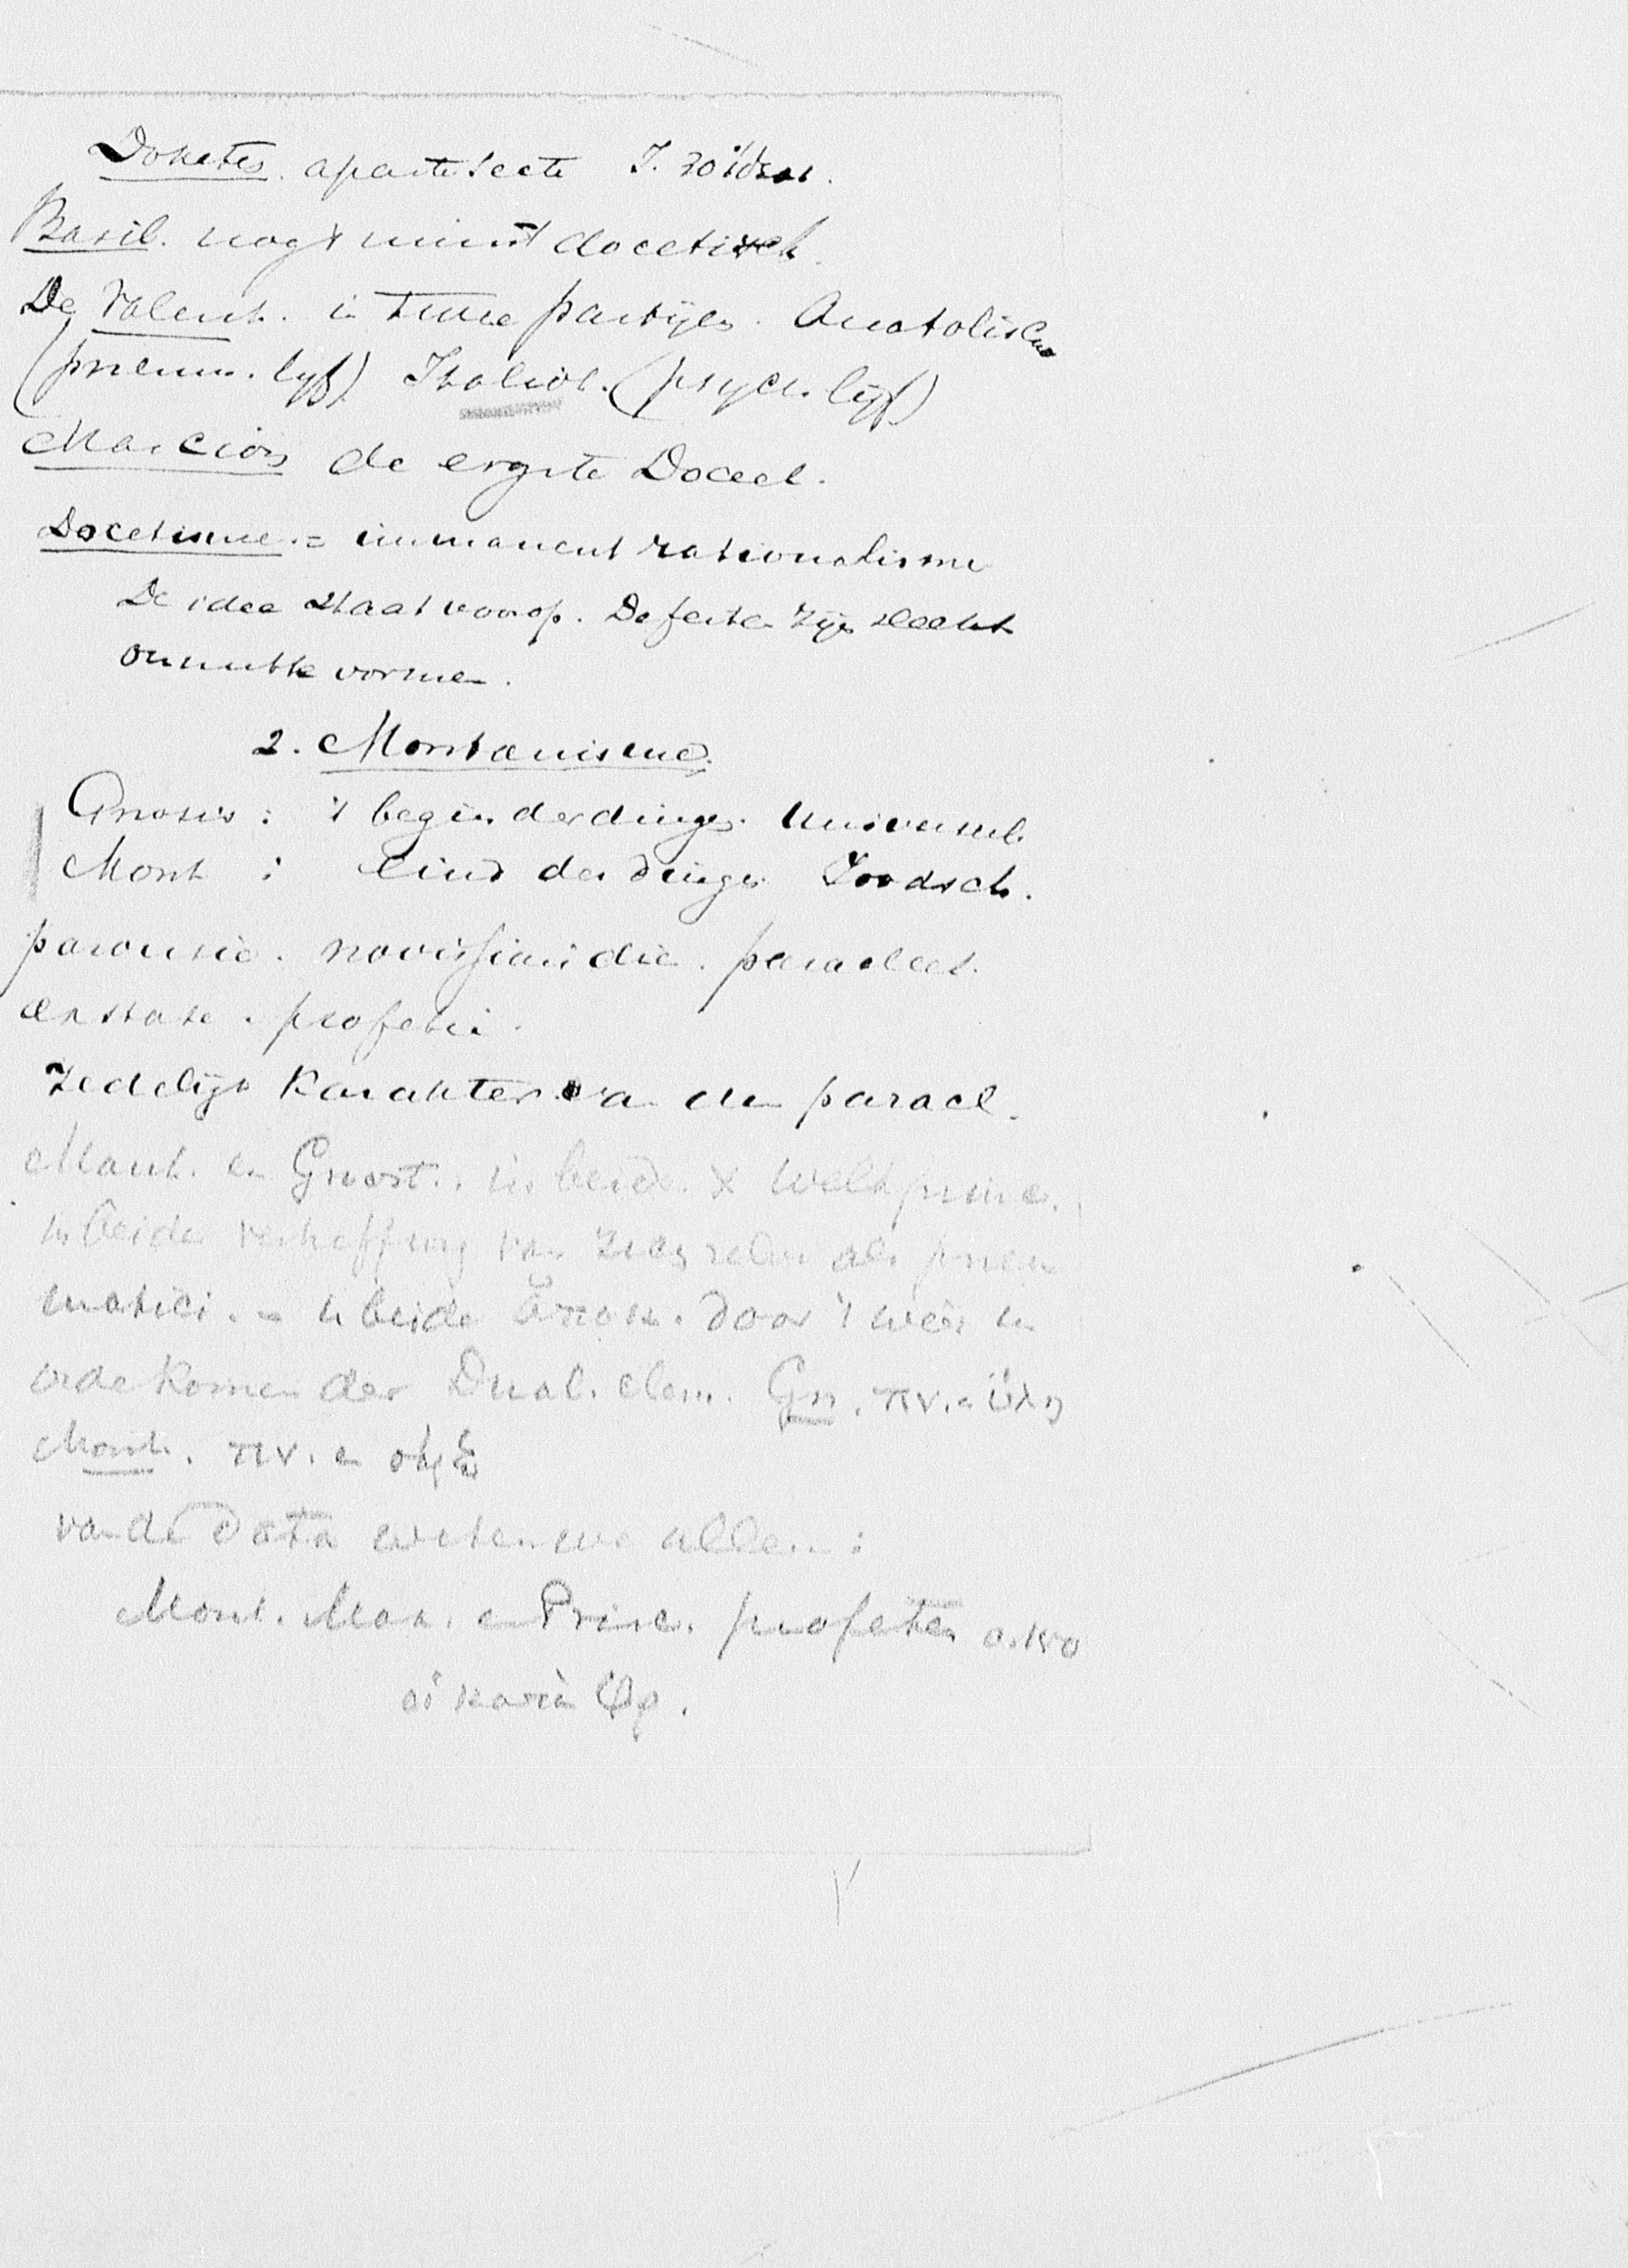 Doketes. aparte secte J. 30
Basil. nog 't minst docetisch.
De Valent. in twee partijen. Anatolische
(pneum. lijf) Italiot. (psych. lijf)
Marcion de ergste Doceet.
Docetisme. = immanent rationalisme
De idee staat voorop. De feiten zijn slechts
onnutte vormen.
2. Montanisme.
Gnosis: 't begin der dingen. Universeel.
Mont: eind der dingen Joodsch.
parousie. novissimi die. paracleet.
exstase. profetie.
Zedelijk Karakter van den paracl.
Mont. en Gnost. in beide X Weltprinc.
in beide verheffing van zich zelve als pneu
matici. = in beide door 't weer in
orde komen der Dual. elem. Gn. πν. en ὕλη
Mont. πν. en σάρξ
van de Data weten we alleen:
Mont. Max. en Prisc. profeten a. 150
οἱ κατὰ Φρ.